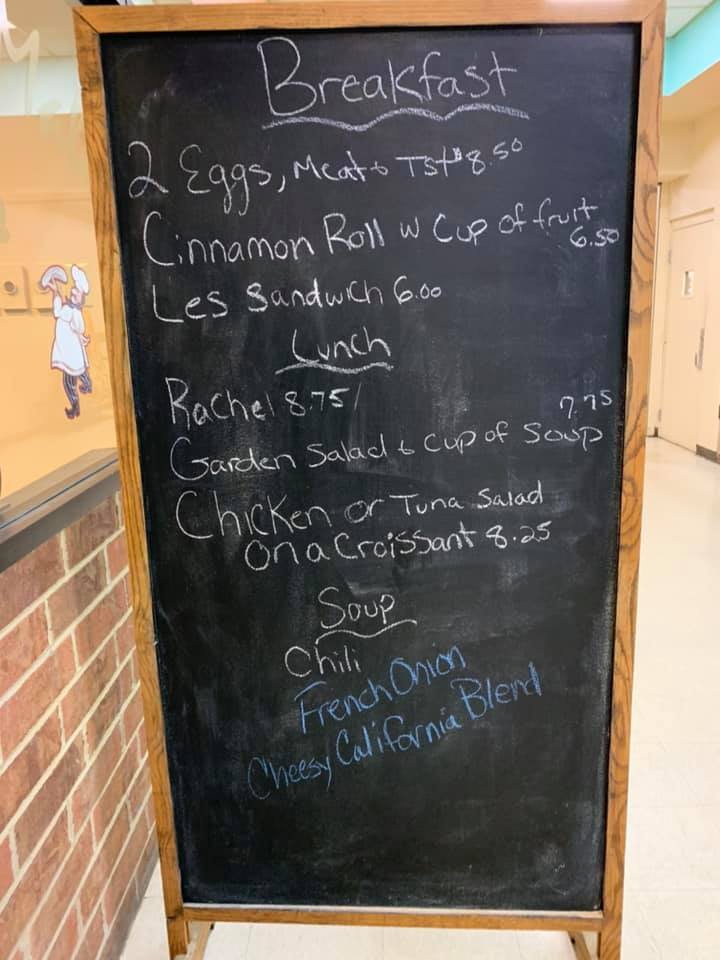 Breakfast
2 Eggs, Meat & Tst $8.50
Cinnamon Roll w Cup of fruit
6.50
Les Sandwich 6.00
Lunch
Rachel 8.75
7.75
Garden Salad & Cup of Soup
Chicken or Tuna Salad
on a Croissant 8.25
Soup
Chili
French Onion
Cheesy California Blend